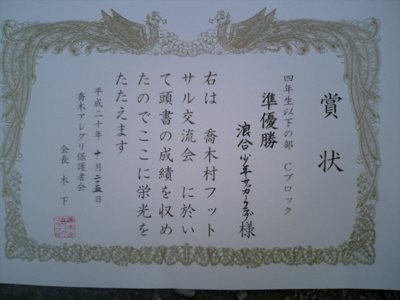 賞状
四年生以下の部 Cブロック
準優勝
浪合少年サッカークラブ様
右は 喬木村フット
サル交流会 に於い
て頭書の成績を収め
たのでここに栄光を
たたえます
平成二十年 十月 二五日
喬木アレグリ保護者会
会長 木下